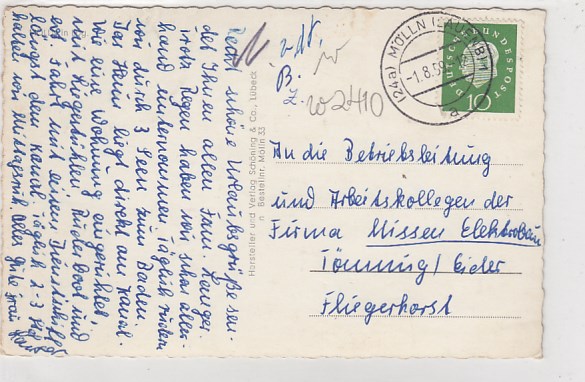 Recht schöne Urlaubsgrüße sen-
det Ihnen allen Fam.
trotz Regen haben wir schon aller-
hand unternommen. Täglich rudern
wir durch 3 Seen zum Baden.
Das Haus liegt direkt am Kanal.
Wie eine Wohnung eingerichtet,
mit Ruderboot und
es fährt mit einem
längst dem Kanal, täglich 2-3
halten wir mittagsruh. Alles gute
Hersteller und Verlag Schöning & Co., Lübeck
Bestellnr. Mölln 33
(24a) MÖLLN (LAUENB)
-1.8.59
DEUTSCHE BUNDESPOST
10
B.
2410
An die Betriebsleitung
und Arbeitskollegen der
Firma Missen Elektrobau
Tönning/Eider
Fliegerhorst